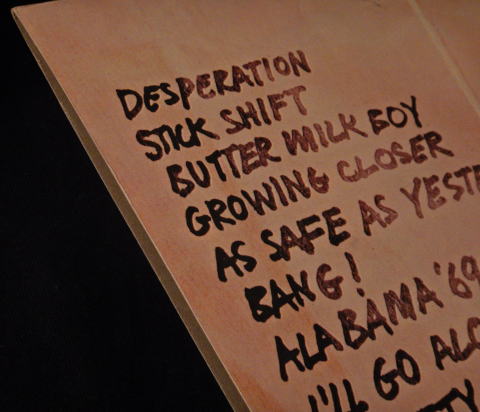 DESPERATION
STICK SHIFT
BUTTER MILK BOY
GROWING CLOSER
AS SAFE AS YESTE
BANG!
ALABAMA '69
I'LL GO ALO
TY